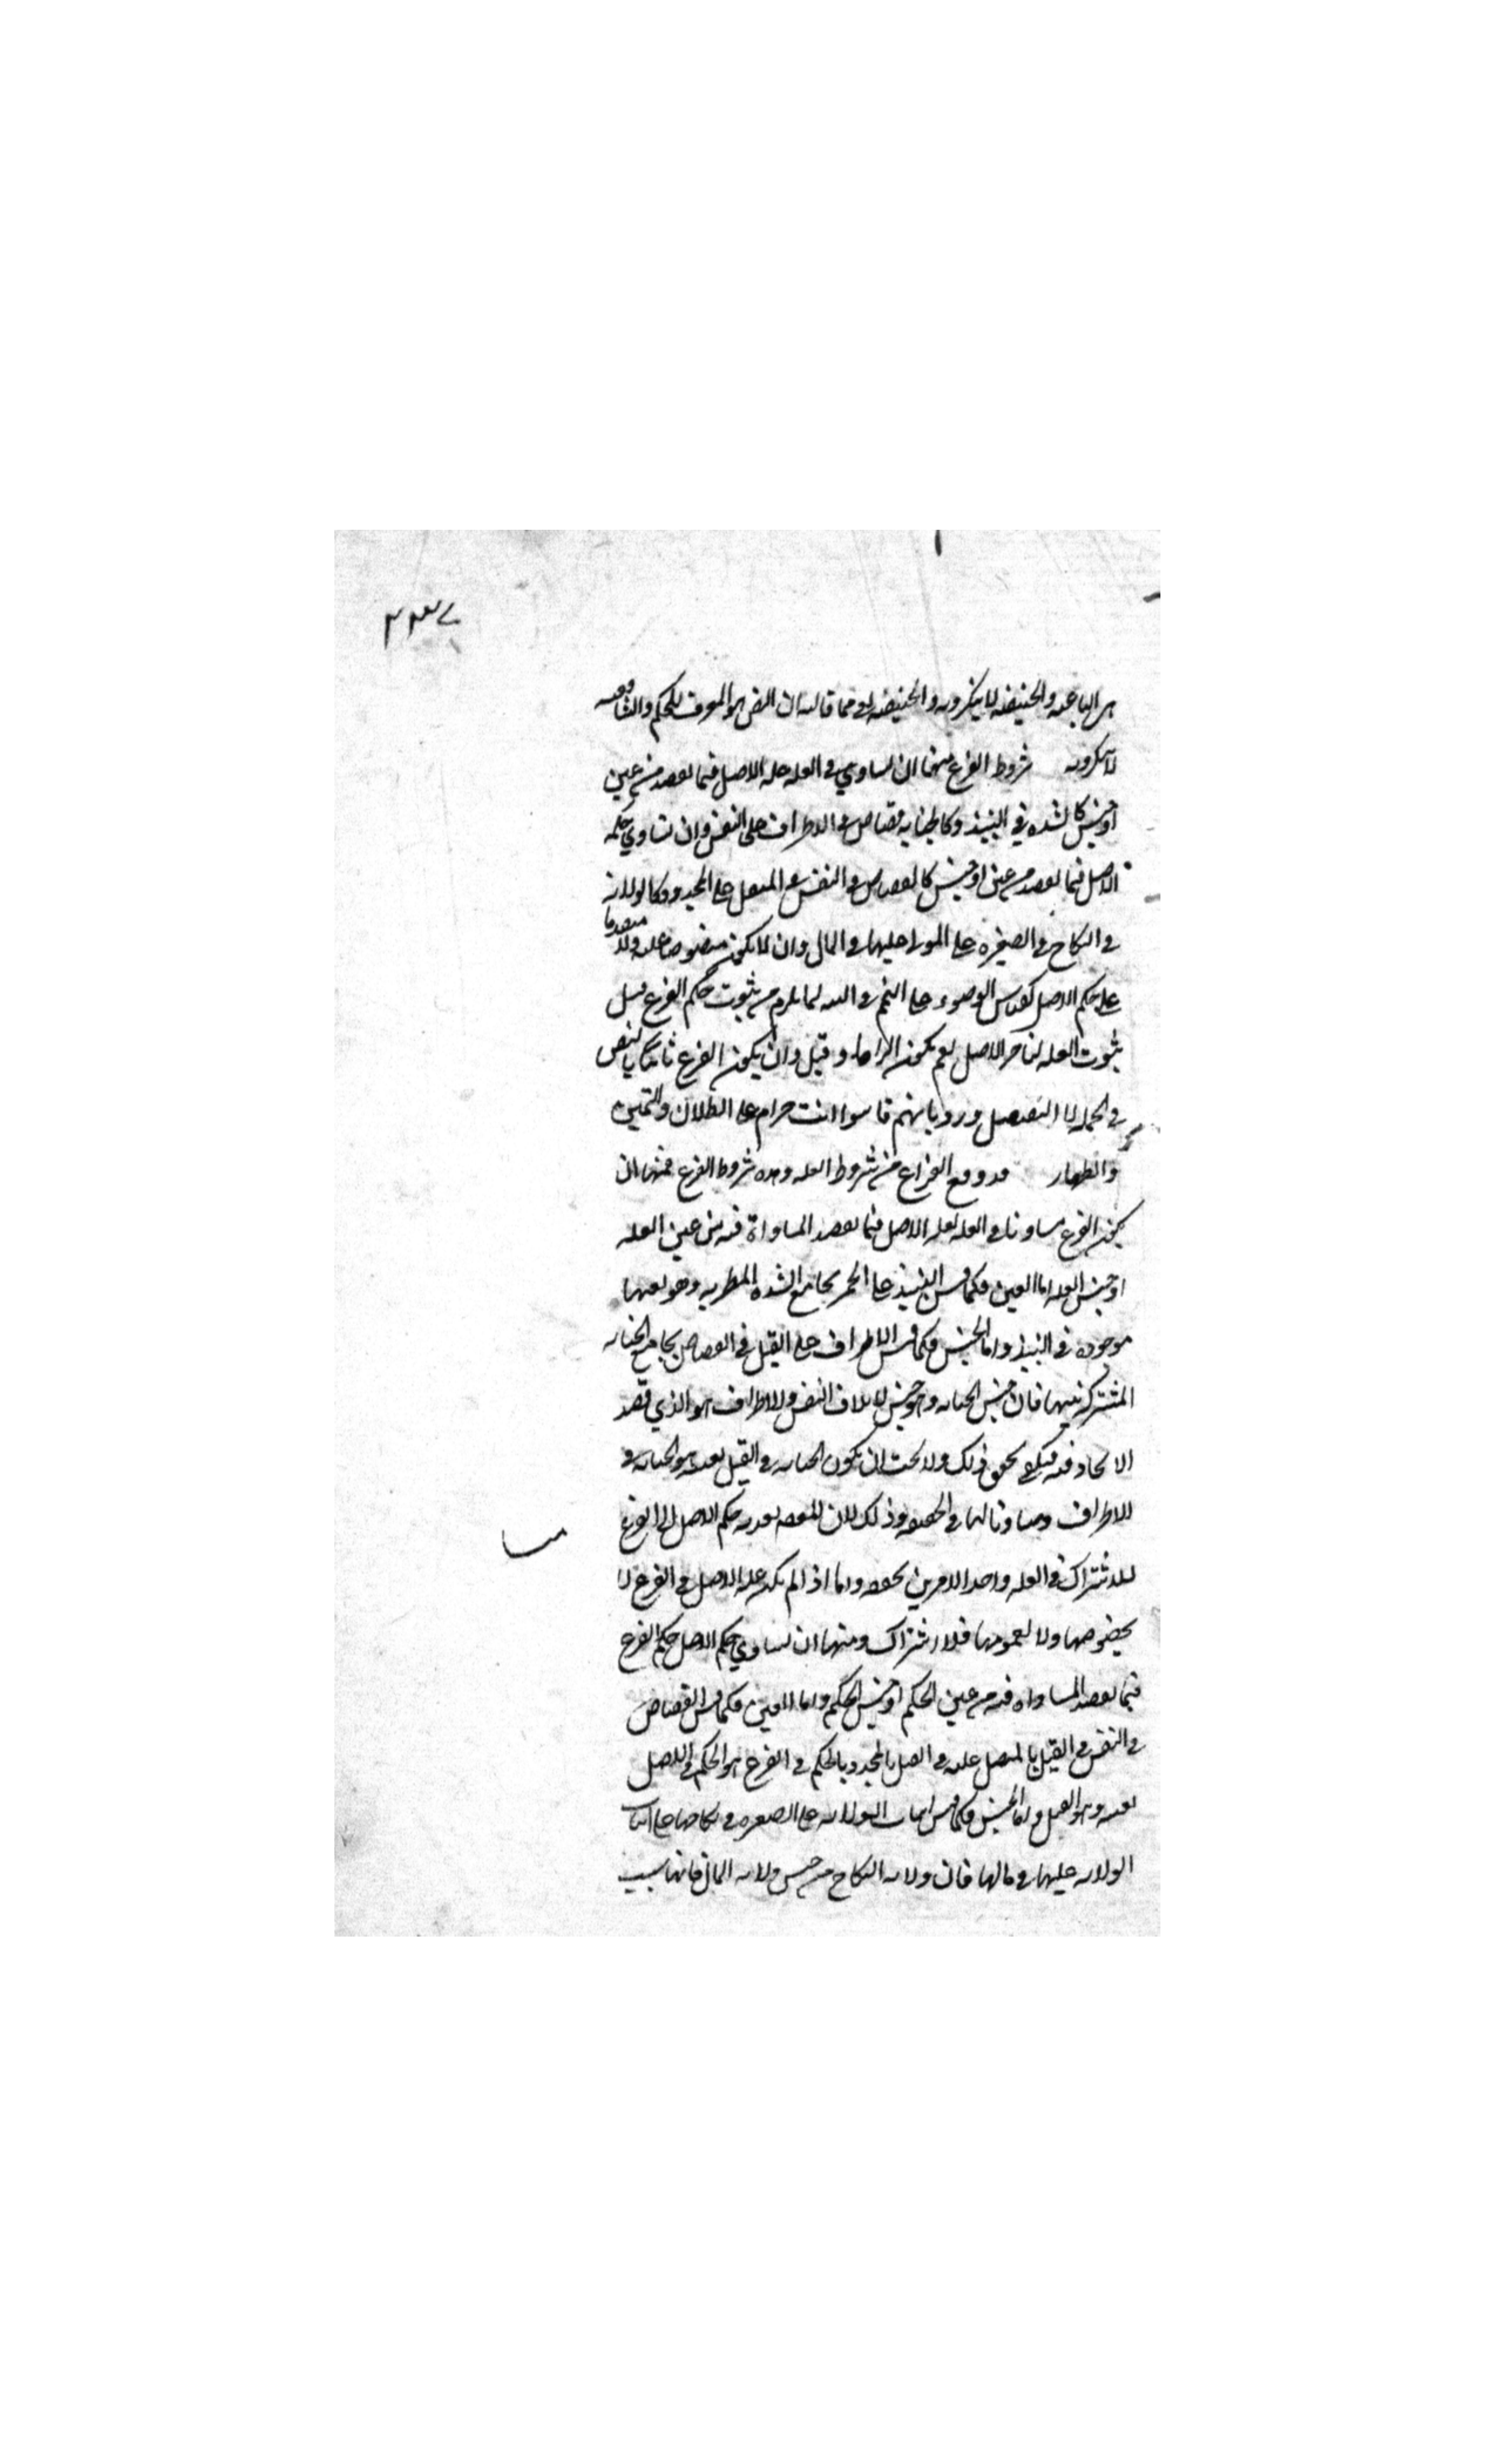 ٢٣٧
هي الباعثه والحنيفه لا ينكرونه والحنيفه لعوهما قالت ان النص هو المعرف للحكم والشافعيه
لا ينكرونه شروط الفرع منها ان يساوي في العله عله الاصل فيما يقصد من عين
او جنس كالشده في النبيذ وكالجنايه في قصاص الاطراف على النفس وان تساوي حكمه
الاصل فيما يقصد من عين او جنس كالقصاص في النفس في المثقل على المحدد وكالولايه
في النكاح في الصغيره على المولى عليها في المال وان لا يكون منصوصا عليه ولا متقدما
على حكم الاصل كقياس الوضوء على التيمم في النيه لما يلزم من ثبوت حكم الفرع قبل
ثبوت العله لتاخر الاصل نعم يكون الزاما وقيل وان يكون الفرع ثابتا بالنص
في الجمله لا التفصيل ورد بانهم قاسوا انت حرام على الطلاق واليمين
والظهار قد وقع الفراغ من شروط العله وهذه شروط الفرع فمنها ان
يكون الفرع مساويا في العله لعله الاصل فيما يقصد المساواة فيه من عين العله
او جنس العله اما العين فكما قيس النبيذ على الخمر بجامع الشده المطربه وهو بعينها
موجوده في النبيذ واما الجنس فكما قيس الاطراف على القتل في القصاص بجامع الجنايه
المشتركه بينهما فان جنس الجنايه وهو جنس لاتلاف النفس والاطراف هو الذي قصد
الاتحاد فيه فيكفي تحقق ذلك ولا يجب ان يكون الجنايه في القتل بعينه هو الجنايه في
الاطراف ومساويا لها في الحقيقه وذلك لان المقصود تعديه حكم الاصل الى الفرع
للاشتراك في العله واحد الامرين يحققه واما اذا لم يكن عله الاصل في الفرع لا
بخصوصها ولا بعمومها فلا اشتراك ومنها ان يساوي حكم الاصل حكم الفرع
فيما يقصد المساواه فيه من عين الحكم او جنس الحكم واما العين فكما قيس القصاص
في النفس في القتل بالمثقل عليه في القتل بالمحدد بالحكم في الفرع هو الحكم في الاصل
بعينه وهو القتل واما الجنس فكما قيس اثبات الولايه على الصغيره في نكاحها على اثبات
الولايه عليها في مالها فان ولايه النكاح من جنس ولايه المال فانها سبب